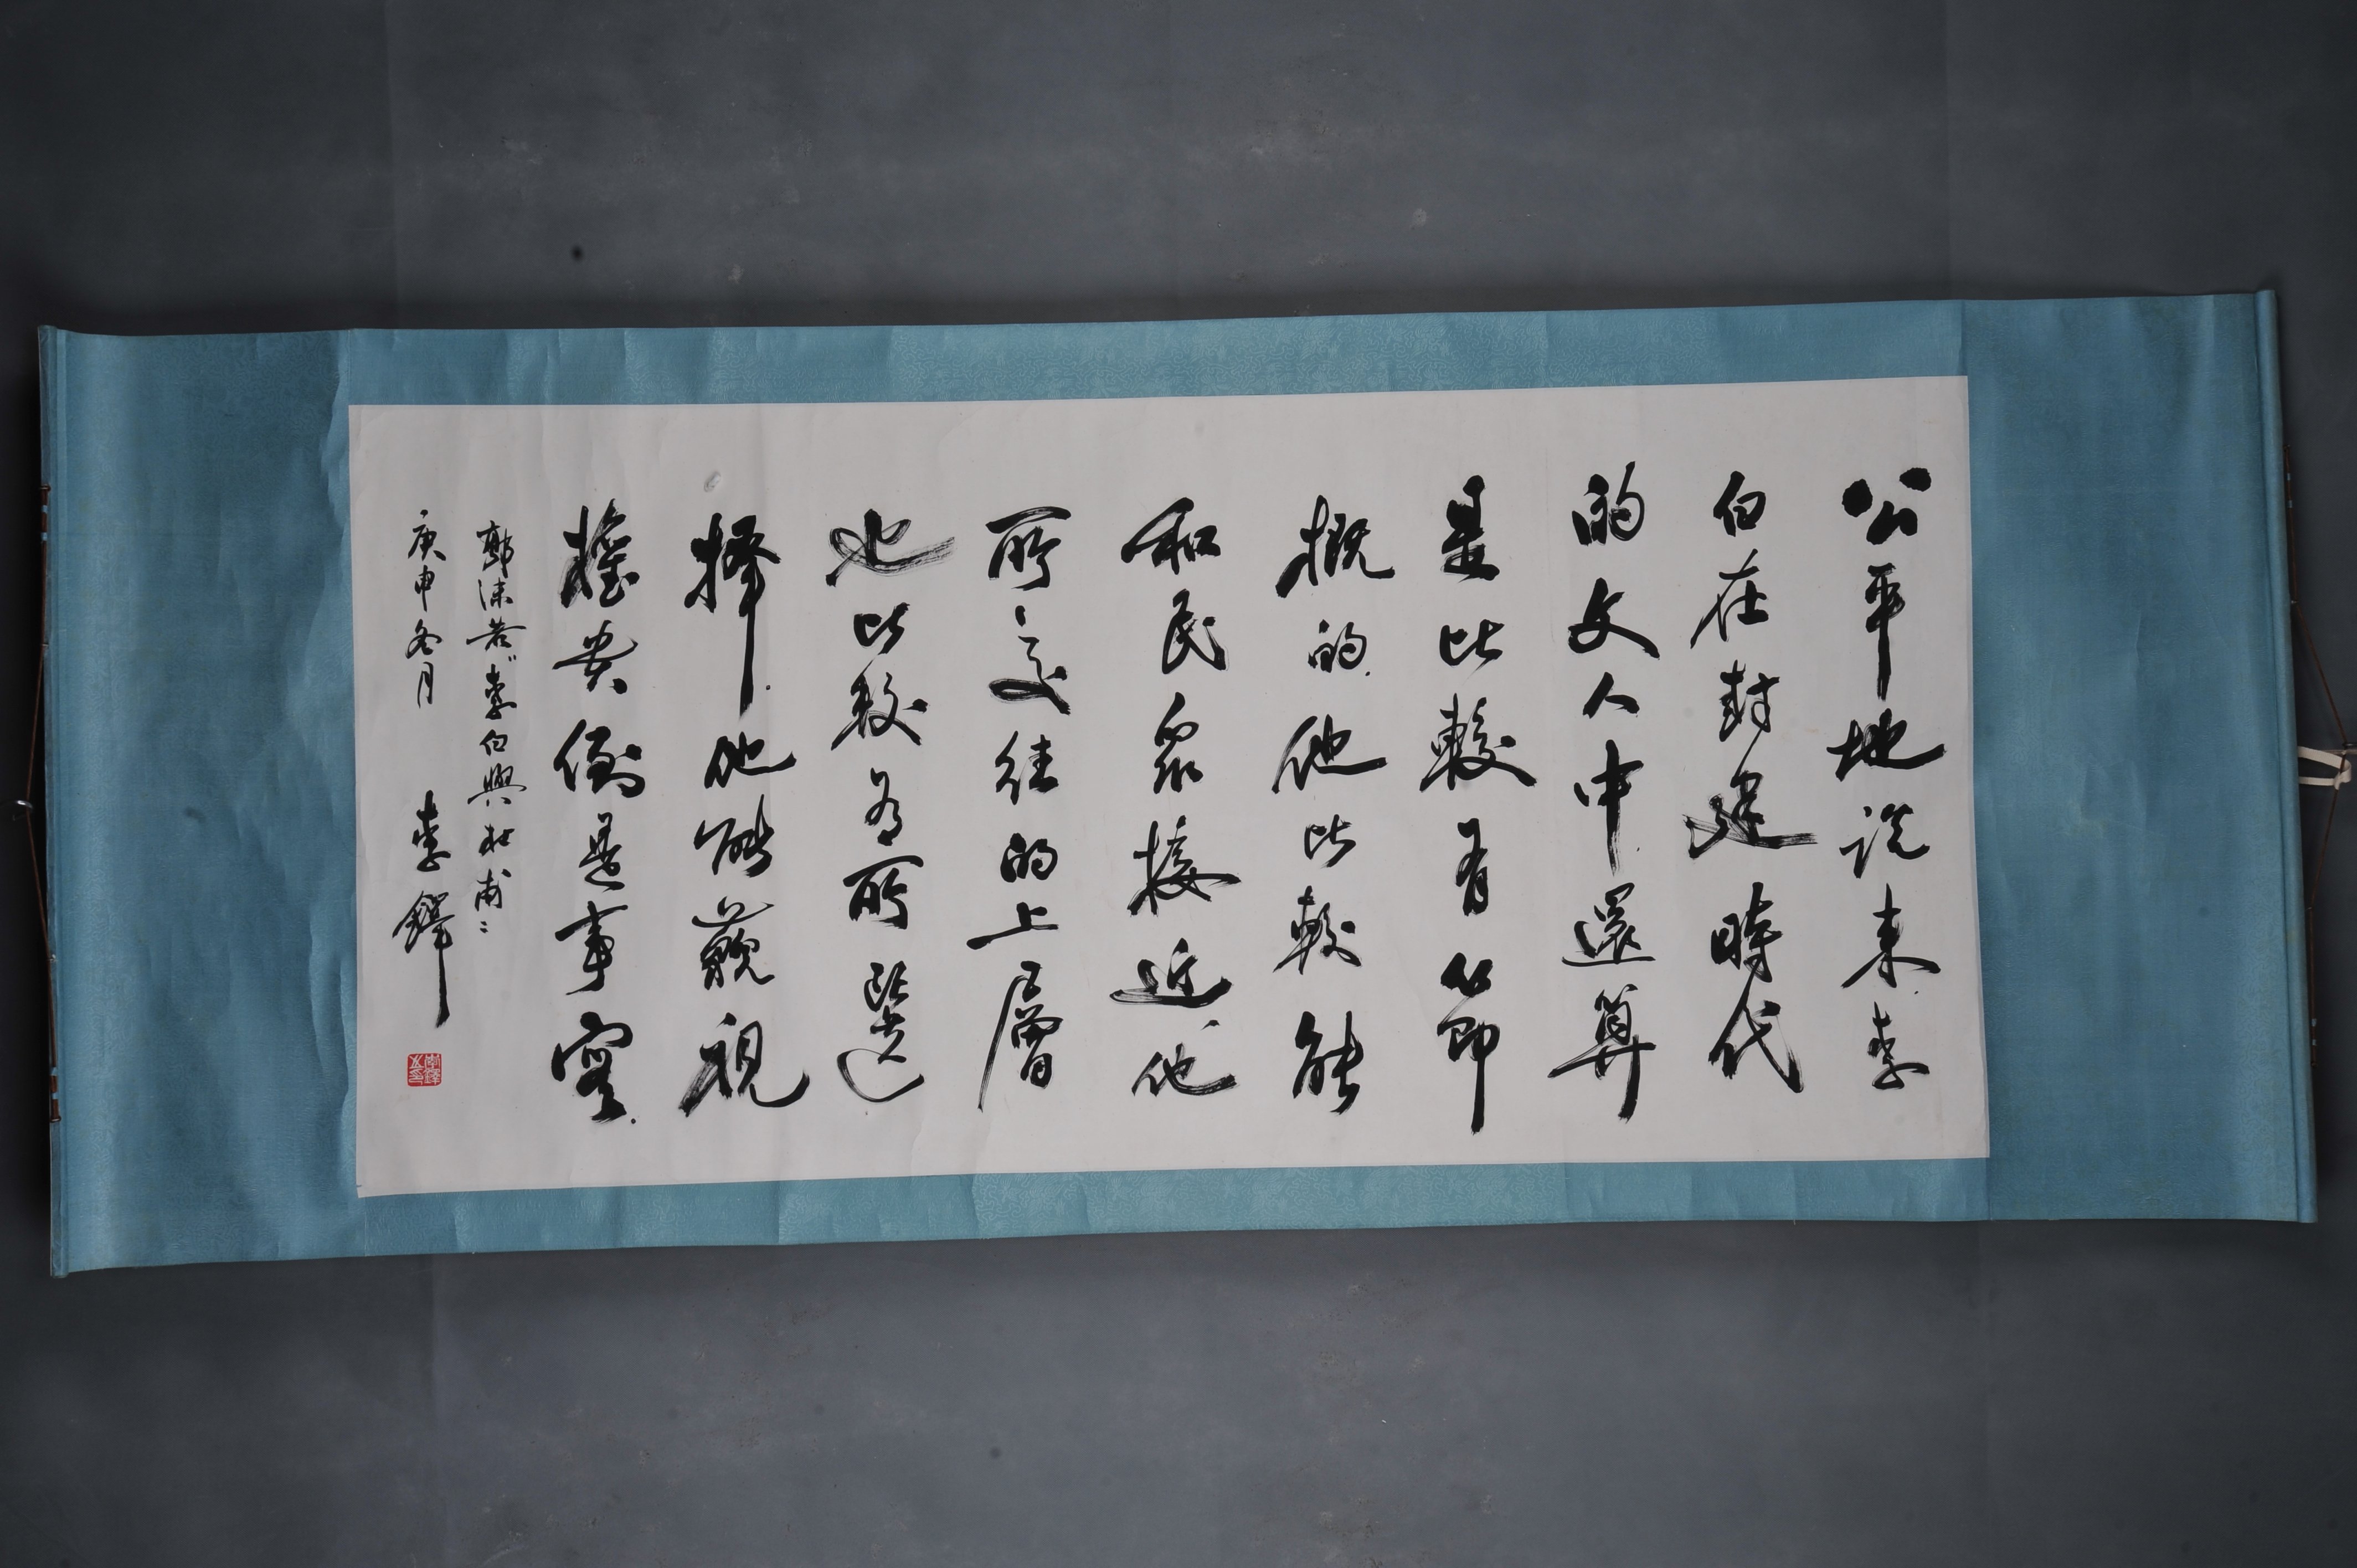 公平地説来李
白在封建時代
的文人中還算
是比較有節
概的他比較能
和民衆接近他
所交往的上層
也比较有所選
擇他能藐視
權貴倒是事實
郭沫若《李白與杜甫》
庚申冬月 李鐸